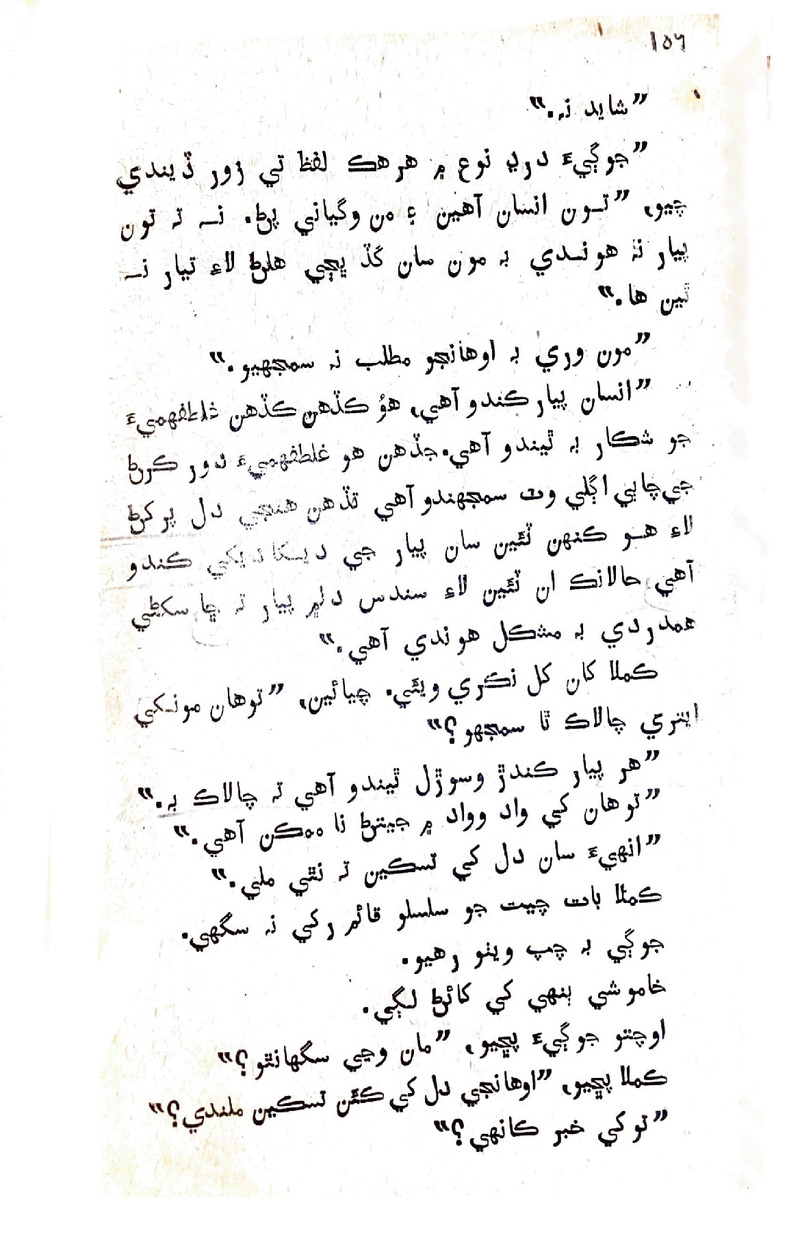 ١٥٦
”شايد نہ.“
”جوڳيءَ درد نوع ۾ هرهڪ لفظ تي زور ڏيندي
چيو، ”تون انسان آهين ۽ من وگياني پڻ. نہ تہ تون
پيار نہ هوندي بہ مون سان گڏ ڀڄي هلڻ لاءِ تيار نہ
ٿين ها.“
”مون وري بہ اوهانجو مطلب نہ سمجهيو.“
”انسان پيار ڪندو آهي، هؤ ڪڏهن ڪڏهن غلطفهميءَ
جو شڪار بہ ٿيندو آهي. جڏهن هو غلطفهميءَ دور ڪرڻ
جي چاٻي اڳلي وٽ سمجهندو آهي تڏهن هنجي دل پر ڪرڻ
لاءِ هو ڪنهن ٽئين سان پيار جي ديکا ديکي ڪندو
آهي حالانڪ ان ٽئين لاءِ سندس دل ۾ پيار تہ ڇا سکڻي
همدردي بہ مشڪل هوندي آهي.“
ڪملا کان کل نڪري ويئي. چيائين، ”توهان مونکي
ايتري چالاڪ ٿا سمجهو؟“
”هر پيار ڪندڙ وسوڙل ٿيندو آهي تہ چالاڪ بہ.“
”توهان کي واد وواد ۾ جيتڻ نا ممڪن آهي.“
”انهيءَ سان دل کي تسڪين تہ نٿي ملي.“
ڪملا بات چيت جو سلسلو قائم رکي نہ سگهي.
جوڳي بہ چپ ويٺو رهيو.
خاموشي ٻنهي کي کائڻ لڳي.
اوچتو جوڳيءَ پڇيو، ”مان وڃي سگهانٿو؟“
ڪملا پڇيو، ”اوهانجي دل کي ڪٿن تسڪين ملندي؟“
”توکي خبر ڪانهي؟“